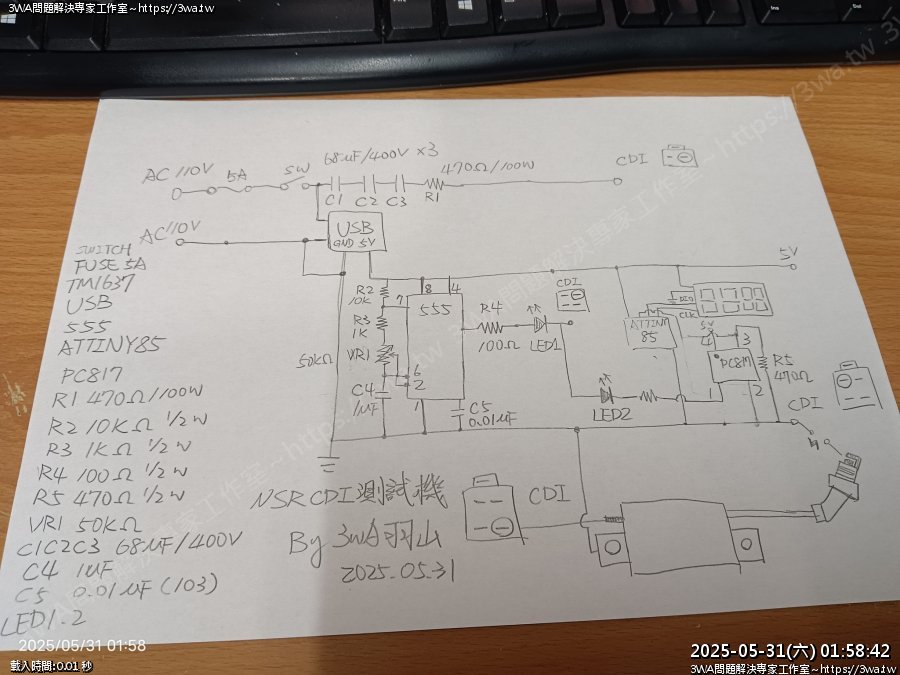 3WA問題解決專家工作室~https://3wa.tw
AC 110V
5A
SW
68uF/400V x3
C1 C2 C3
470Ω/100W
R1
CDI
AC 110V
USB
GND 5V
5V
SWITCH
FUSE 5A
TM1637
USB
555
ATTINY85
PC817
R1 470Ω/100W
R2 10KΩ 1/2W
R3 1KΩ 1/2W
R4 100Ω 1/2W
R5 470Ω 1/2W
VR1 50KΩ
C1C2C3 68uF/400V
C4 1uF
C5 0.01uF(103)
LED1.2
R2
10K
R3
1K
50KΩ
VR1
C4
1uF
7
8
4
555
6
2
1
C5
0.01uF
R4
100Ω
LED1
CDI
LED2
ATTINY
85
DIO
CLK
5V
4
3
PC817
1
2
R5
470Ω
CDI
NSR CDI測試機
By 3WA羽山
2025.05.31
CDI
2025/05/31 01:58
載入時間:0.01 秒
2025-05-31(六) 01:58:42
3WA問題解決專家工作室~https://3wa.tw